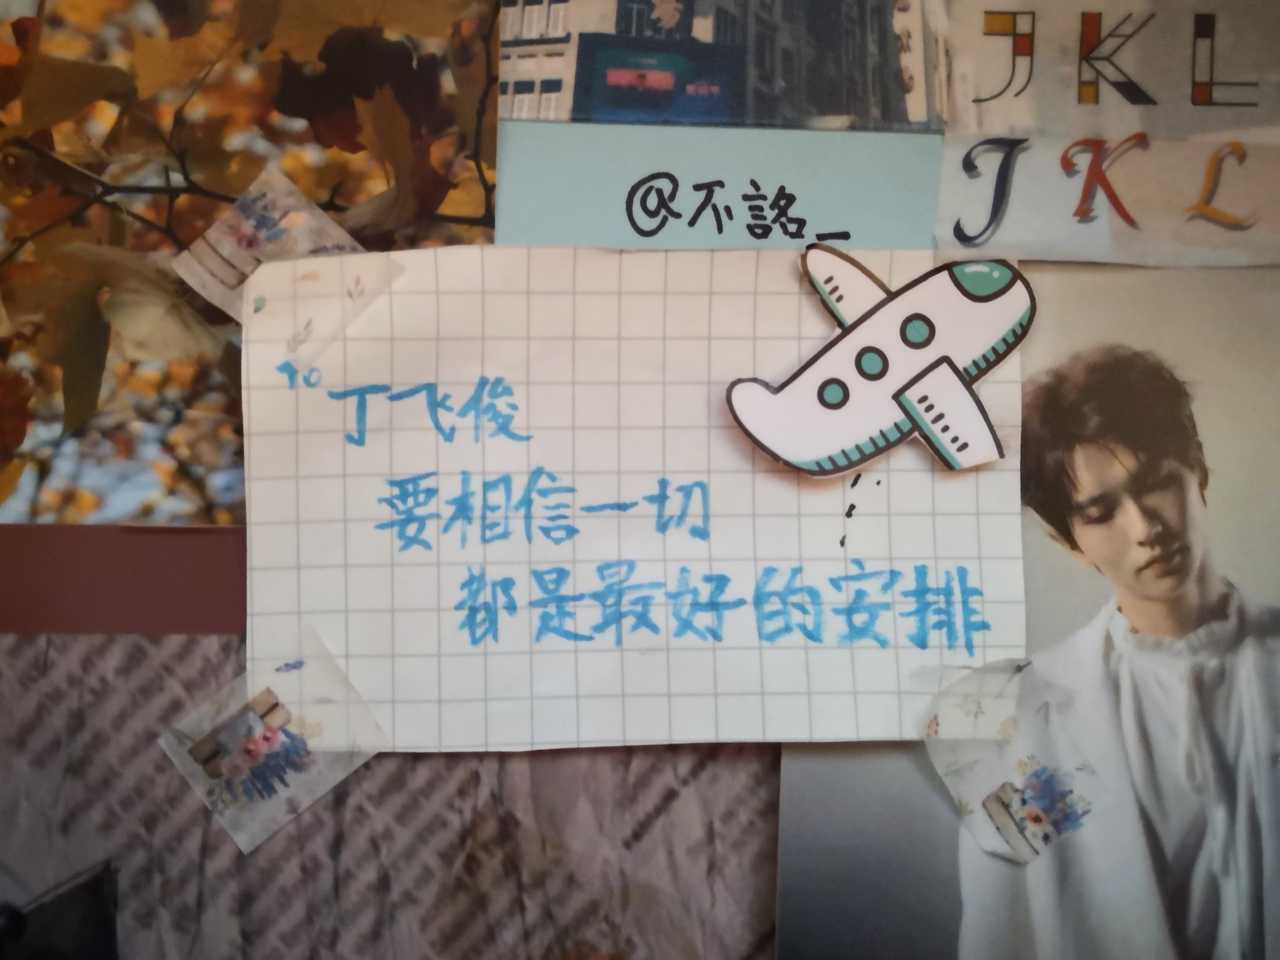 JKL
JKL
@不詺_
To
丁飞俊
要相信一切
都是最好的安排